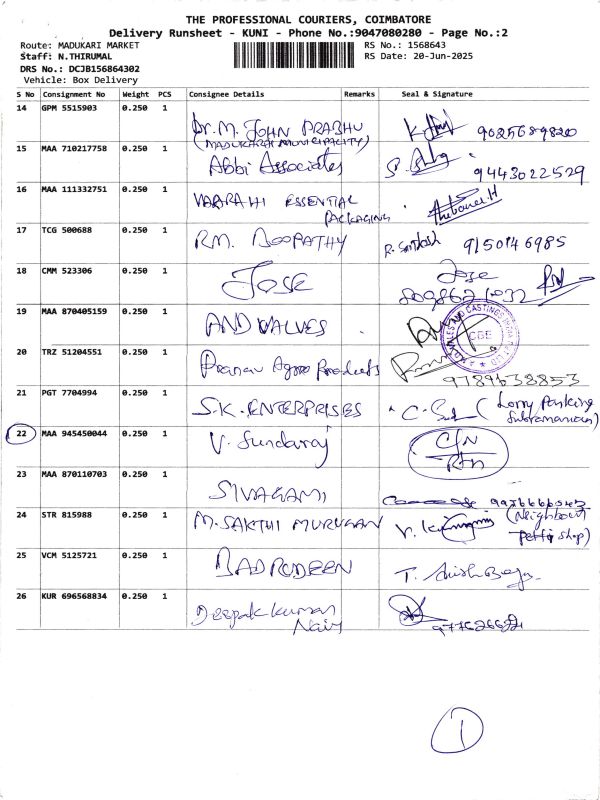 THE PROFESSIONAL COURIERS, COIMBATORE
Delivery Runsheet - KUNI - Phone No.:9047080280 - Page No.:2
Route: MADUKARI MARKET
RS No.: 1568643
Staff: N.THIRUMAL
RS Date: 20-Jun-2025
DRS No.: DCJB156864302
Vehicle: Box Delivery
S No Consignment No Weight PCS Consignee Details Remarks Seal & Signature
14 GPM 5515903 0.250 1
Dr. M. JOHN PRABHU 9025689820
(MADUKARAI MUNICIPALITY)
15 MAA 710217758 0.250 1
Abbi Associates 9443022529
16 MAA 111332751 0.250 1
VAARAHI ESSENTIAL
PACKAGING
17 TCG 500688 0.250 1
RM. BOOPATHY R. Santhosh 9150146985
18 CMM 523306 0.250 1
JOSE Jose
8098621032
19 MAA 870405159 0.250 1
AND VALVES CBE
20 TRZ 51204551 0.250 1
Pranav Agro Products
9789638853
21 PGT 7704994 0.250 1
S.K. ENTERPRISES (Lorry Parking
Subramanian)
22 MAA 945450044 0.250 1
V. Sundaraj C/N
Rtn
23 MAA 870110703 0.250 1
SIVAGAMI
24 STR 815988 0.250 1
M. SAKTHI MURUGAN (Neighbour
petti shop)
25 VCM 5125721 0.250 1
BADRUDEEN
26 KUR 696568834 0.250 1
Deepak kumar
Nair
1